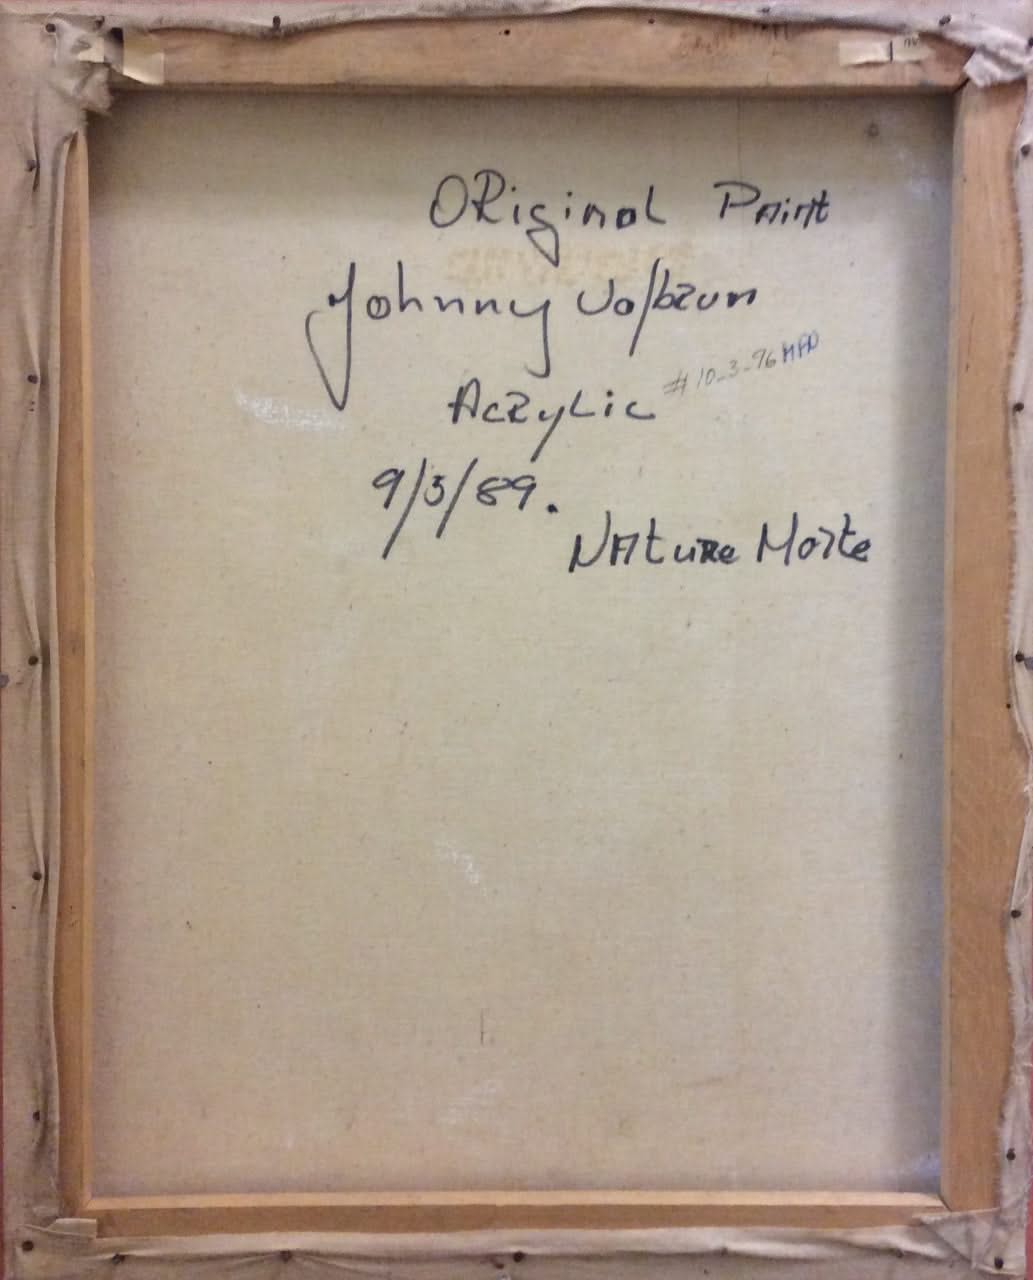 ORiginal Paint
Johnny Volbrun
Acrylic
#10-3-96 MAD
9/3/89.
NAtuRe Morte